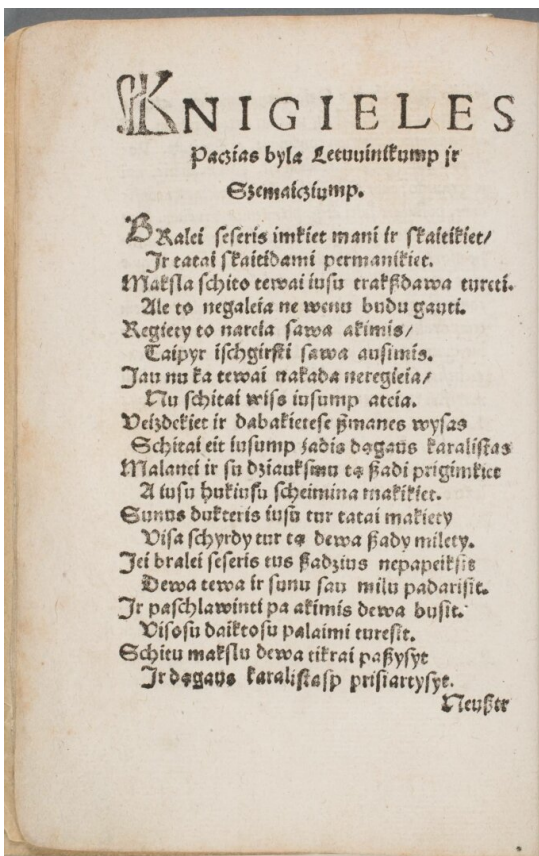 KNIGIELES
Paczias byla Letuuinikump ir
Szemaicziump.
BRalei seseris imkiet mani ir skaitikiet/
Ir tatai skaitidami permanikiet.
Maksla schito tewai iusu trakßdawa tureti.
Ale to negaleia ne wenu budu gauti.
Regiety to nareia sawa akimis/
Taipyr ischgirsti sawa ausimis.
Jau nu ka tewai nakada neregieia/
Nu schitai wiss iusump ateia.
Veizdekiet ir dabakietese ßmanes wysas
Schitai eit iusump ʒadis dągaus karalistas
Malanei ir su dziauksmu tą ßadi prigimkiet
A iusu hukiusu scheimina makikiet.
Sunus dukteris iusu tur tatai makiety
Visa schyrdy tur tą dewa ßady milety.
Jei bralei seseris tus ßadzius nepapeiksit
Dewa tewa ir sunu sau milu padarisit.
Ir paschlawinti pa akimis dewa busit.
Visosu daiktosu palaimi turesit.
Schitu makslu dewa tikrai paßysyt
Ir dągaus karalistasp prisiartysyt.
Neußtr